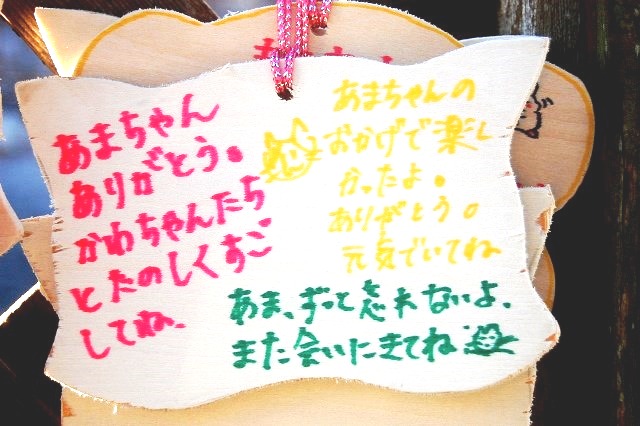 あまちゃん
ありがとう。
かわちゃんたち
とたのしくすご
してね、
あまちゃんの
おかげで楽し
かったよ。
ありがとう。
元気でいてね
あま、ずっと忘れないよ、
また会いにきてね